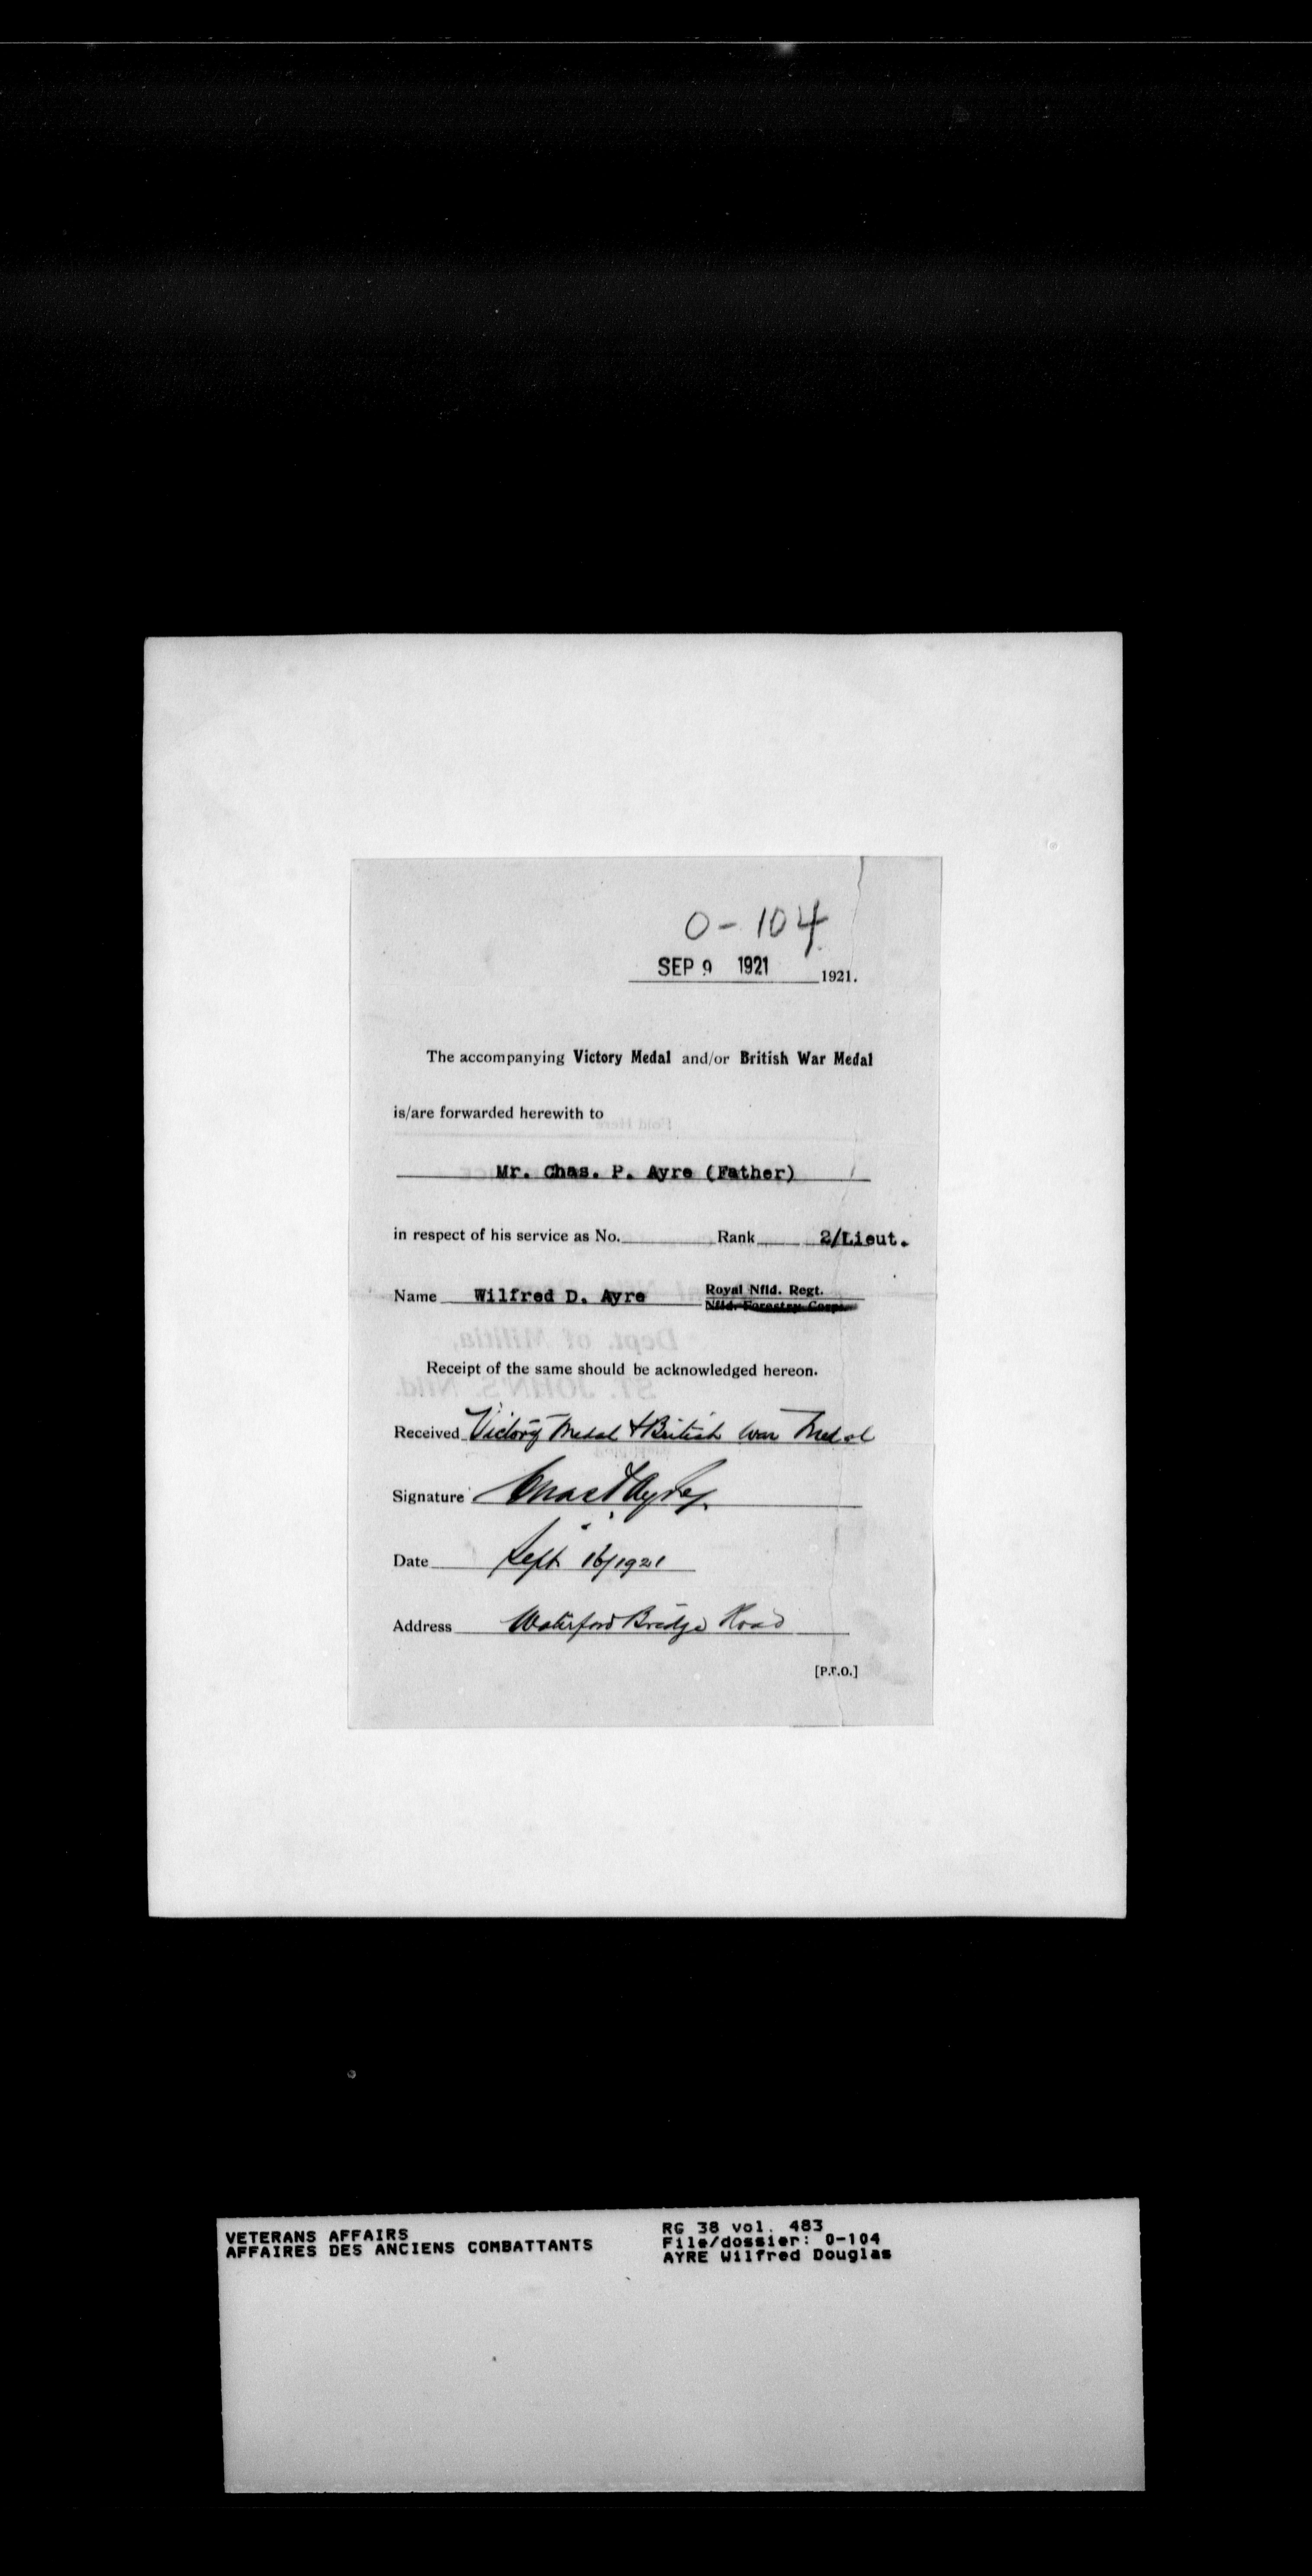 0-104
SEP 9 1921 1921.
The accompanying Victory Medal and/or British War Medal
is/are forwarded herewith to
Mr. Chas. P. Ayre (Father)
in respect of his service as No. Rank 2/Lieut.
Name Wilfred D. Ayre Royal Nfld. Regt.
Nfld. Forestry Corps
Receipt of the same should be acknowledged hereon.
Received Victory Medal & British War Medal
Signature
Date Sept 16/1921
Address Waterford Bridge Road
[P.T.O.]
VETERANS AFFAIRS
AFFAIRES DES ANCIENS COMBATTANTS
RG 38 vol. 483
File/dossier: 0-104
AYRE Wilfred Douglas